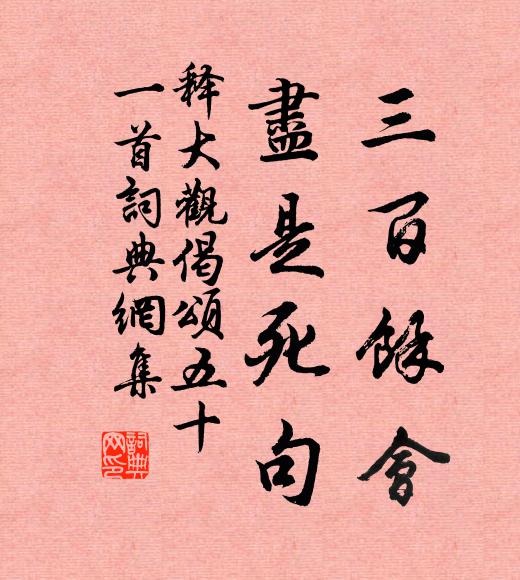 三百餘會
盡是死句
释大觀偈頌五十
一首詞典網集
詞典网印